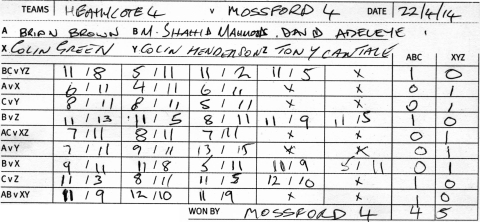 TEAMS HEATHCOTE 4 V MOSSFORD 4 DATE 22/4/14
A BRIAN BROWN B M. SHAHID MAHMOOD DAVID ADELEYE
X COLIN GREEN Y COLIN HENDERSON Z TONY CANTALE ABC XYZ
BCvYZ 11 / 8 5 / 11 11 / 2 11 / 5 x 1 0
AvX 6 / 11 4 / 11 6 / 11 x x 0 1
CvY 8 / 11 8 / 11 5 / 11 x x 0 1
BvZ 11 / 13 11 / 5 8 / 11 11 / 9 11 / 5 1 0
ACvXZ 7 / 11 8 / 11 7 / 11 x x 0 1
AvY 7 / 11 9 / 11 13 / 15 x x 0 1
BvX 9 / 11 11 / 8 5 / 11 11 / 9 5 / 11 0 1
CvZ 11 / 3 8 / 11 11 / 5 12 / 10 x 1 0
ABvXY 11 / 9 12 / 10 11 / 9 x x 1 0
WON BY MOSSFORD 4 4 5